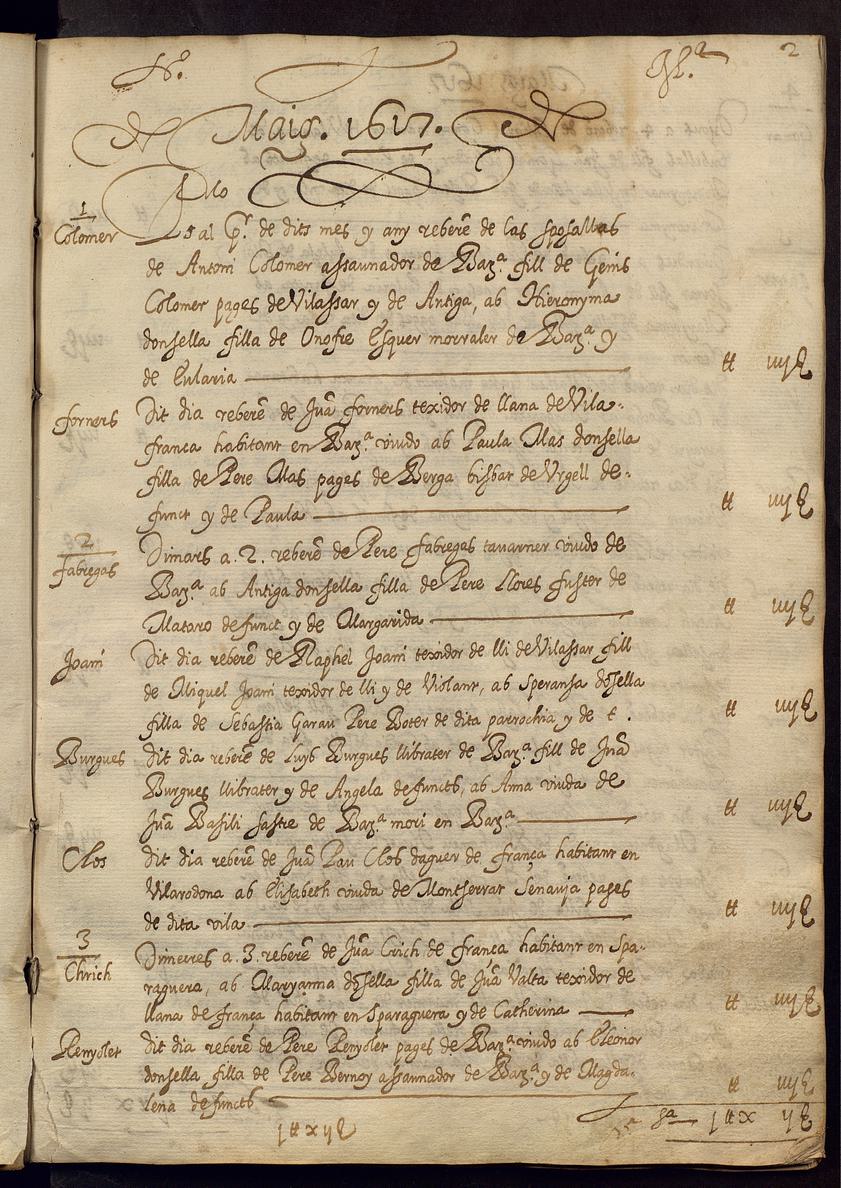 2
Maig. 1617.
1
Colomer
als al p.r de dits mes y any reberē de las sposalles
de Antoni Colomer assaunador de Bar.a fill de Genis
Colomer pages de Vilassar y de Antiga, ab Hieronyma
donsella filla de Onofre Esquer morraler de Bar.a y
de Eularia
Forners
Dit dia reberē de Juā forners texidor de llana de Vila-
franca habitant en Bar.a viudo ab Paula Mas donsella
filla de Pere Mas pages de Berga bisbat de Vrgell de-
funct y de Paula
2
Fabregas
Dimars a .2. reberē de Pere Fabregas tauarner viudo de
Bar.a ab Antiga donsella filla de Pere Llores fuster de
Mataro defunct y de Margarida
Joani
Dit dia reberē de Raphel Joani texidor de lli de Vilassar fill
de Miquel Joani texidor de lli y de Violant, ab Speransa dōsella
filla de Sebastia Garau Pere Boter de dita parrochia y de t .
Burgues
dit dia reberē de Luys Burgues llibrater de Bar.a fill de Juā
Burgues llibrater y de Angela defuncts, ab Anna viuda de
Juā Basili sastre de Bar.a mori en Bar.a
Clos
dit dia reberē de Juā Pau Clos daguer de frança habitant en
Vilarodona ab Elisabeth viuda de Montserrat Senauja pages
de dita vila
3
Chrich
Dimecres a .3. reberē de Juā Crich de franca habitant en Spa-
raguera, ab Maryanna dōsella filla de Juā Valta texidor de
llana de frança habitant en Sparaguera y de Catherina
Renyolet
dit dia reberē de Pere Renyolet pages de Bar.a viudo ab Eleonor
donsella filla de Pere Bernoy assaunador de Bar.a y de Magda-
lena defuncts